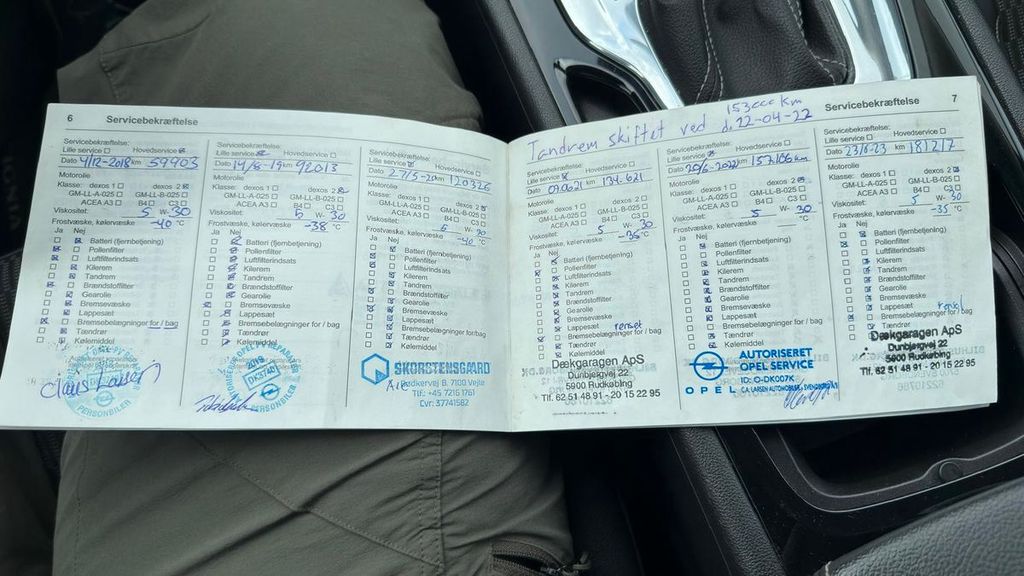 6 Servicebekræftelse
Servicebekræftelse:
Lille service Hovedservice
Dato 4/12-2018 km 59903
Motorolie
Klasse: dexos 1 dexos 2
GM-LL-A-025 GM-LL-B-025
ACEA A3 B4 C3
Viskositet: 5 W- 30
Frostvæske, kølervæske -40 °C
Ja Nej
Batteri (fjernbetjening)
Pollenfilter
Luftfilterindsats
Kilerem
Tandrem
Brændstoffilter
Gearolie
Bremsevæske
Lappesæt
Bremsebelægninger for / bag
Tændrør
Kølemiddel
PERSONBILER
Servicebekræftelse:
Lille service Hovedservice
Dato 14/6-19 km 92013
Motorolie
Klasse: dexos 1 dexos 2
GM-LL-A-025 GM-LL-B-025
ACEA A3 B4 C3
Viskositet: 5 W- 30
Frostvæske, kølervæske -38 °C
Ja Nej
Batteri (fjernbetjening)
Pollenfilter
Luftfilterindsats
Kilerem
Tandrem
Brændstoffilter
Gearolie
Bremsevæske
Lappesæt
Bremsebelægninger for / bag
Tændrør
Kølemiddel
2019
PERSONBILER
Servicebekræftelse:
Lille service Hovedservice
Dato 27/5-20 km 120326
Motorolie
Klasse: dexos 1 dexos 2
GM-LL-A-025 GM-LL-B-025
ACEA A3 B4 C3
Viskositet: 5 W- 30
Frostvæske, kølervæske -40 °C
Ja Nej
Batteri (fjernbetjening)
Pollenfilter
Luftfilterindsats
Kilerem
Tandrem
Brændstoffilter
Gearolie
Bremsevæske
Lappesæt
Bremsebelægninger for / bag
Tændrør
Kølemiddel
SKORSTENSGAARD
Rødkærvej 8, 7100 Vejle
Tlf.: +45 7216 1761
Cvr: 37741582
Servicebekræftelse 7
Tandrem skiftet ved 153000 km
d. 22-04-22
Servicebekræftelse:
Lille service Hovedservice
Dato 090621 km 134.621
Motorolie
Klasse: dexos 1 dexos 2
GM-LL-A-025 GM-LL-B-025
ACEA A3 B4 C3
Viskositet: 5 W- 30
Frostvæske, kølervæske -35 °C
Ja Nej
Batteri (fjernbetjening)
Pollenfilter
Luftfilterindsats
Kilerem
Tandrem
Brændstoffilter
Gearolie
Bremsevæske
Lappesæt renset
Bremsebelægninger for / bag
Tændrør
Kølemiddel
Dækgaragen ApS
Dunbjergvej 22
5900 Rudkøbing
Tlf. 62 51 48 91 - 20 15 22 95
Servicebekræftelse:
Lille service Hovedservice
Dato 20/6-2022 km 157106
Motorolie
Klasse: dexos 1 dexos 2
GM-LL-A-025 GM-LL-B-025
ACEA A3 B4 C3
Viskositet: 5 W- 30
Frostvæske, kølervæske °C
Ja Nej
Batteri (fjernbetjening)
Pollenfilter
Luftfilterindsats
Kilerem
Tandrem
Brændstoffilter
Gearolie
Bremsevæske
Lappesæt
Bremsebelægninger for / bag
Tændrør
Kølemiddel
AUTORISERET
OPEL SERVICE
ID: O-DK007K
OPEL C.A. LARSEN AUTOMOBILER, SVENDBORG
Servicebekræftelse:
Lille service Hovedservice
Dato 23/6-23 km 181217
Motorolie
Klasse: dexos 1 dexos 2
GM-LL-A-025 GM-LL-B-025
ACEA A3 B4 C3
Viskositet: 5 W- 30
Frostvæske, kølervæske -35 °C
Ja Nej
Batteri (fjernbetjening)
Pollenfilter
Luftfilterindsats
Kilerem
Tandrem
Brændstoffilter
Gearolie
Bremsevæske
Lappesæt
Bremsebelægninger for / bag
Tændrør
Kølemiddel
Dækgaragen ApS
Dunbjergvej 22
5900 Rudkøbing
Tlf. 62 51 48 91 - 20 15 22 95